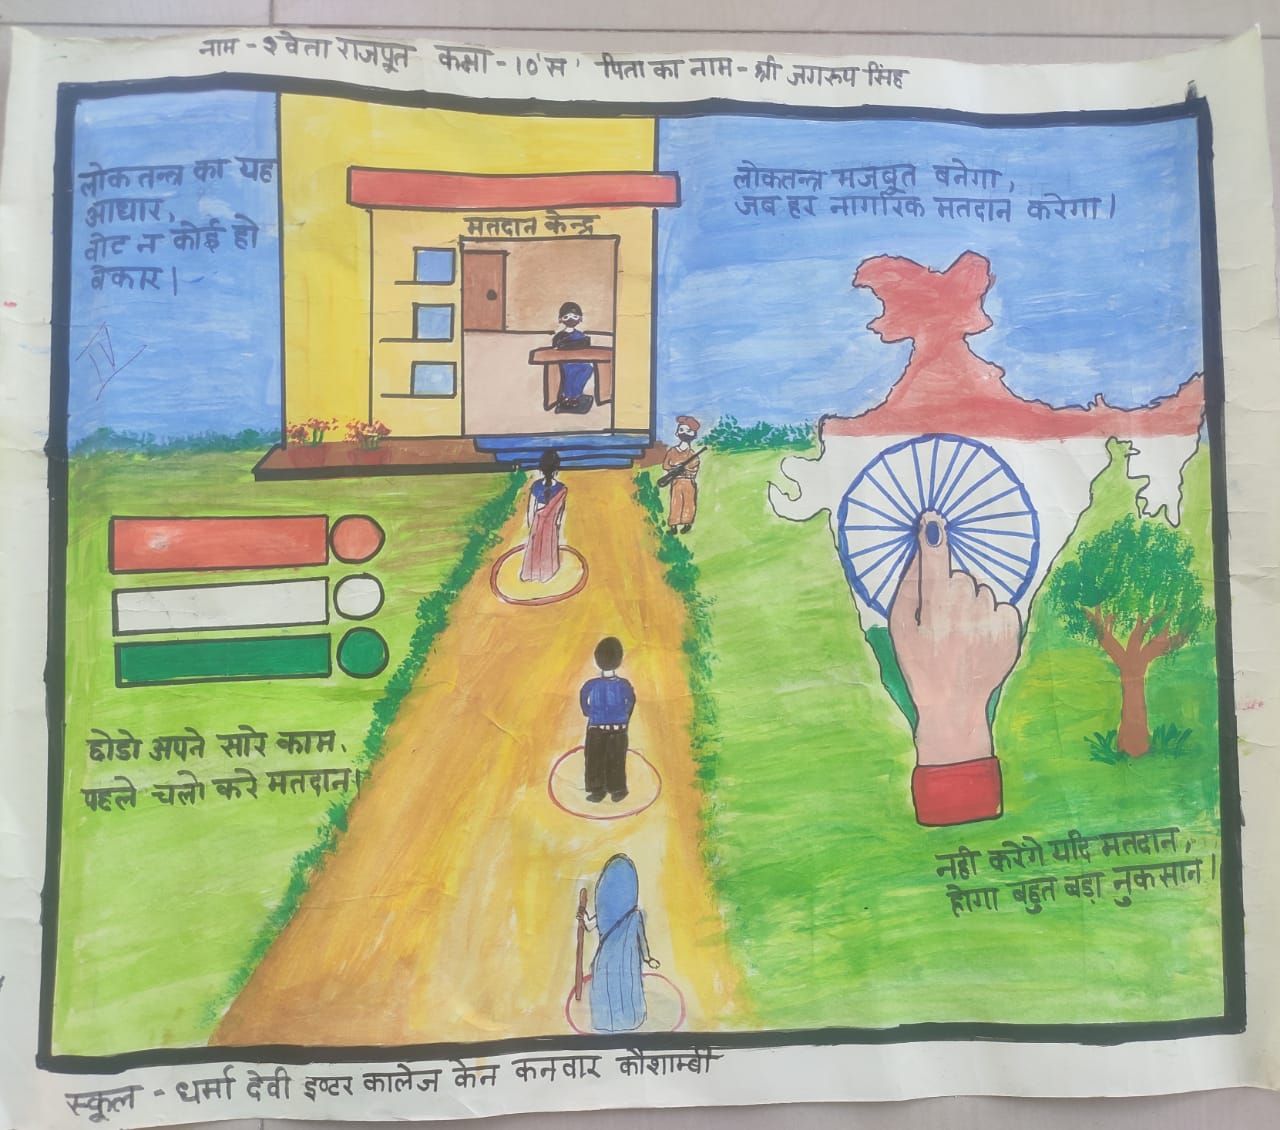 नाम - श्वेता राजपूत कक्षा - 10'स' पिता का नाम - श्री जगरूप सिंह
लोकतन्त्र का यह
आधार,
वोट न कोई हो
बेकार।
मतदान केन्द्र
लोकतन्त्र मजबूत बनेगा,
जब हर नागरिक मतदान करेगा।
छोडो अपने सारे काम,
पहले चलो करे मतदान।
नही करेंगे यदि मतदान,
होगा बहुत बड़ा नुकसान।
स्कूल - धर्मा देवी इण्टर कालेज केन कनवार कौशाम्बी